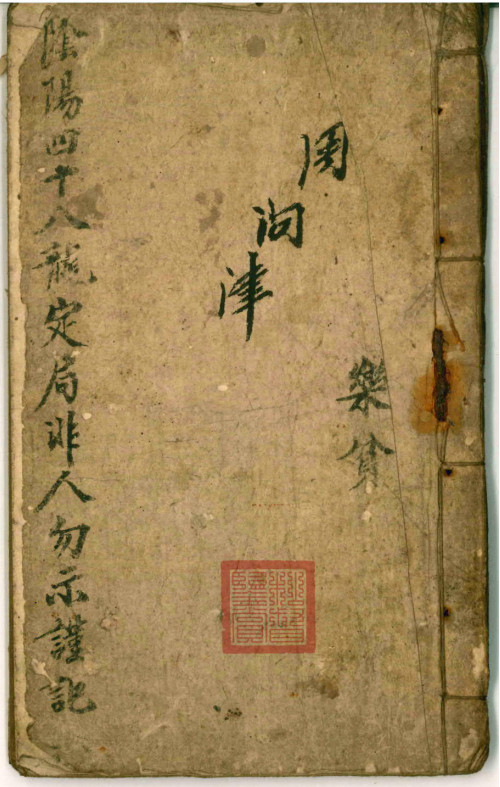 樂貧
周洵津
陰陽四十八龍定局非人勿示謹記